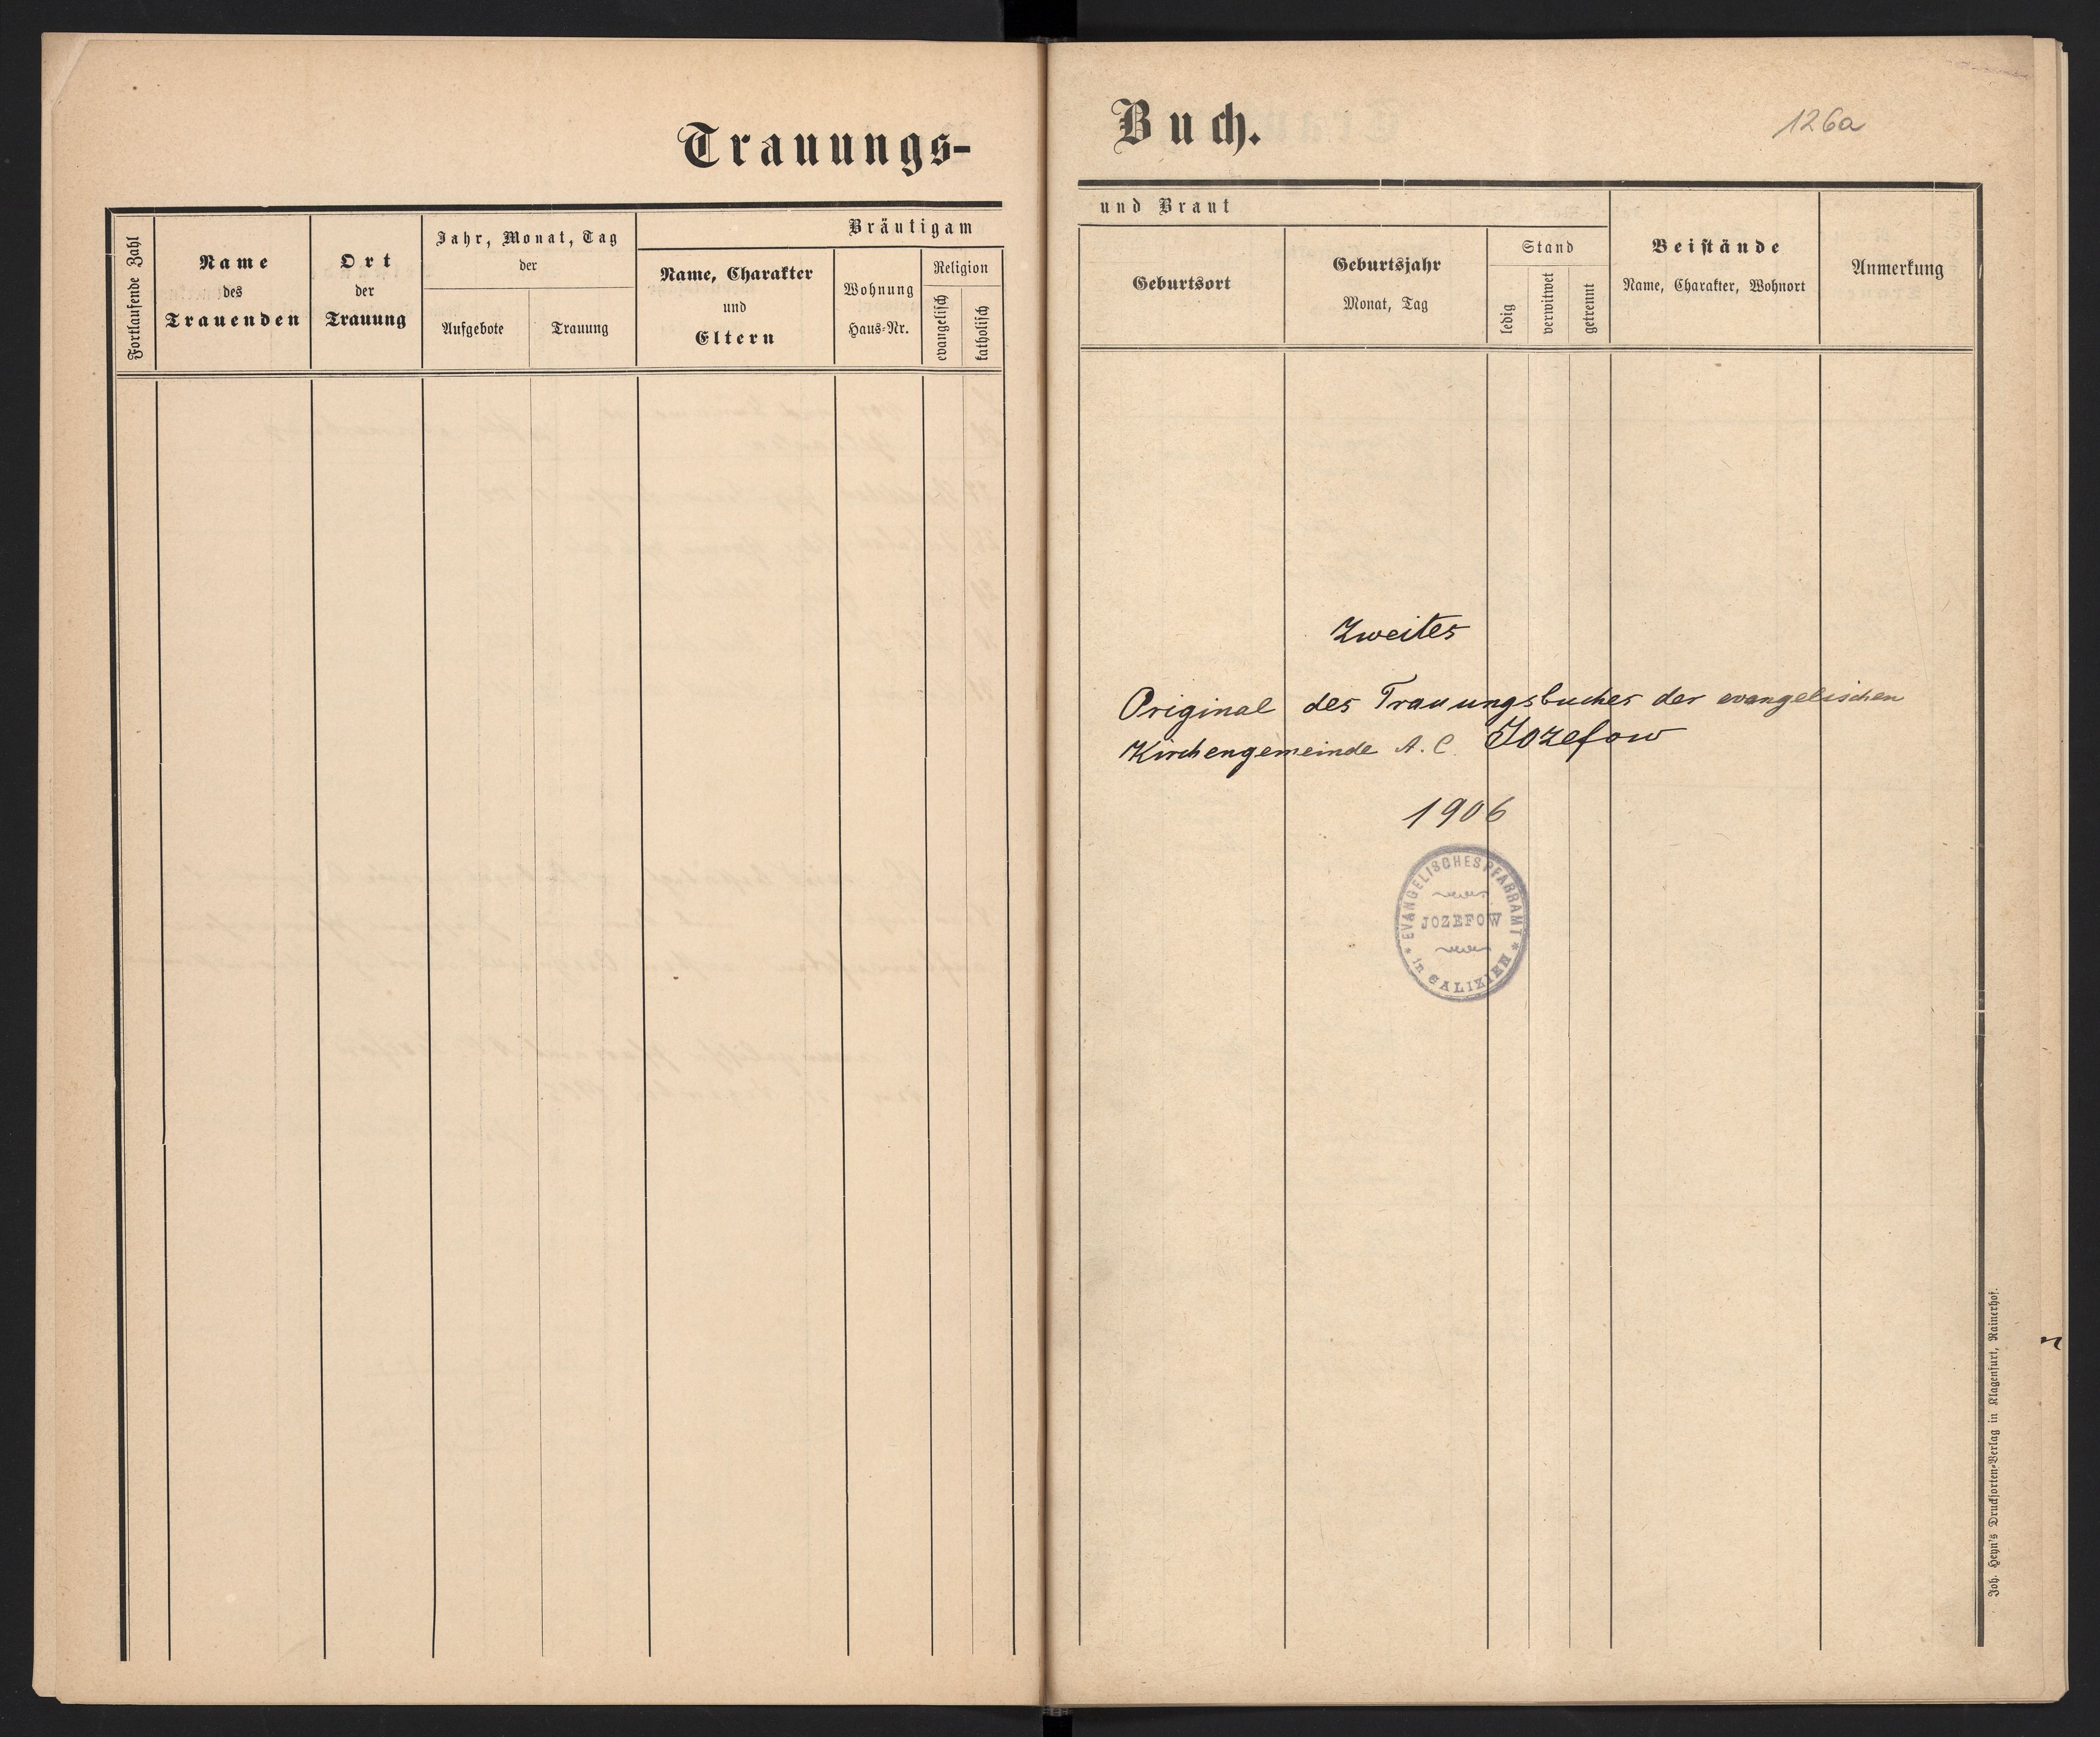 Trauungs-
Fortlaufende Zahl
Name
des
Trauenden
Ort
der
Trauung
Jahr, Monat, Tag
der
Aufgebote
Trauung
Bräutigam
Name, Charakter
und
Eltern
Wohnung
Haus-Nr.
Religion
evangelisch
katholisch
Buch.
126a
und Braut
Geburtsort
Geburtsjahr
Monat, Tag
Stand
ledig
verwitwet
getrennt
Beistände
Name, Charakter, Wohnort
Anmerkung
Zweites
Original des Trauungsbuches der evangelischen
Kirchengemeinde A. C. Jozefow
1906
EVANGELISCHES PFARRAMT
JOZEFOW
in GALIZIEN
Joh. Heyn's Drucksorten-Verlag in Klagenfurt, Rainerhof.